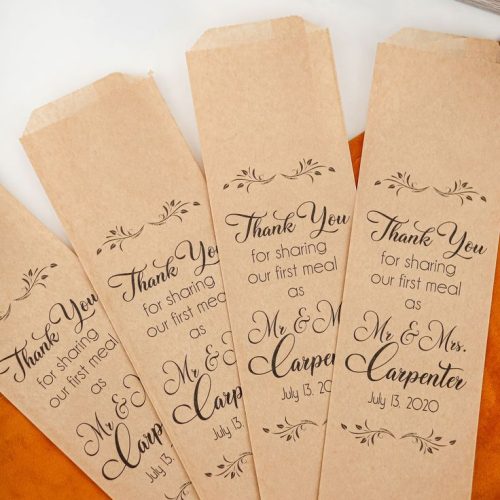 Thank You
for sharing
our first meal
as
Mr & M
Carpen
July 13
Thank You
for sharing
our first meal
as
Mr & M
Carpenter
July 13,
Thank You
for sharing
our first meal
as
Mr & M
Carpenter
July 13, 202
Thank You
for sharing
our first meal
as
Mr & Mrs.
Carpenter
July 13, 2020